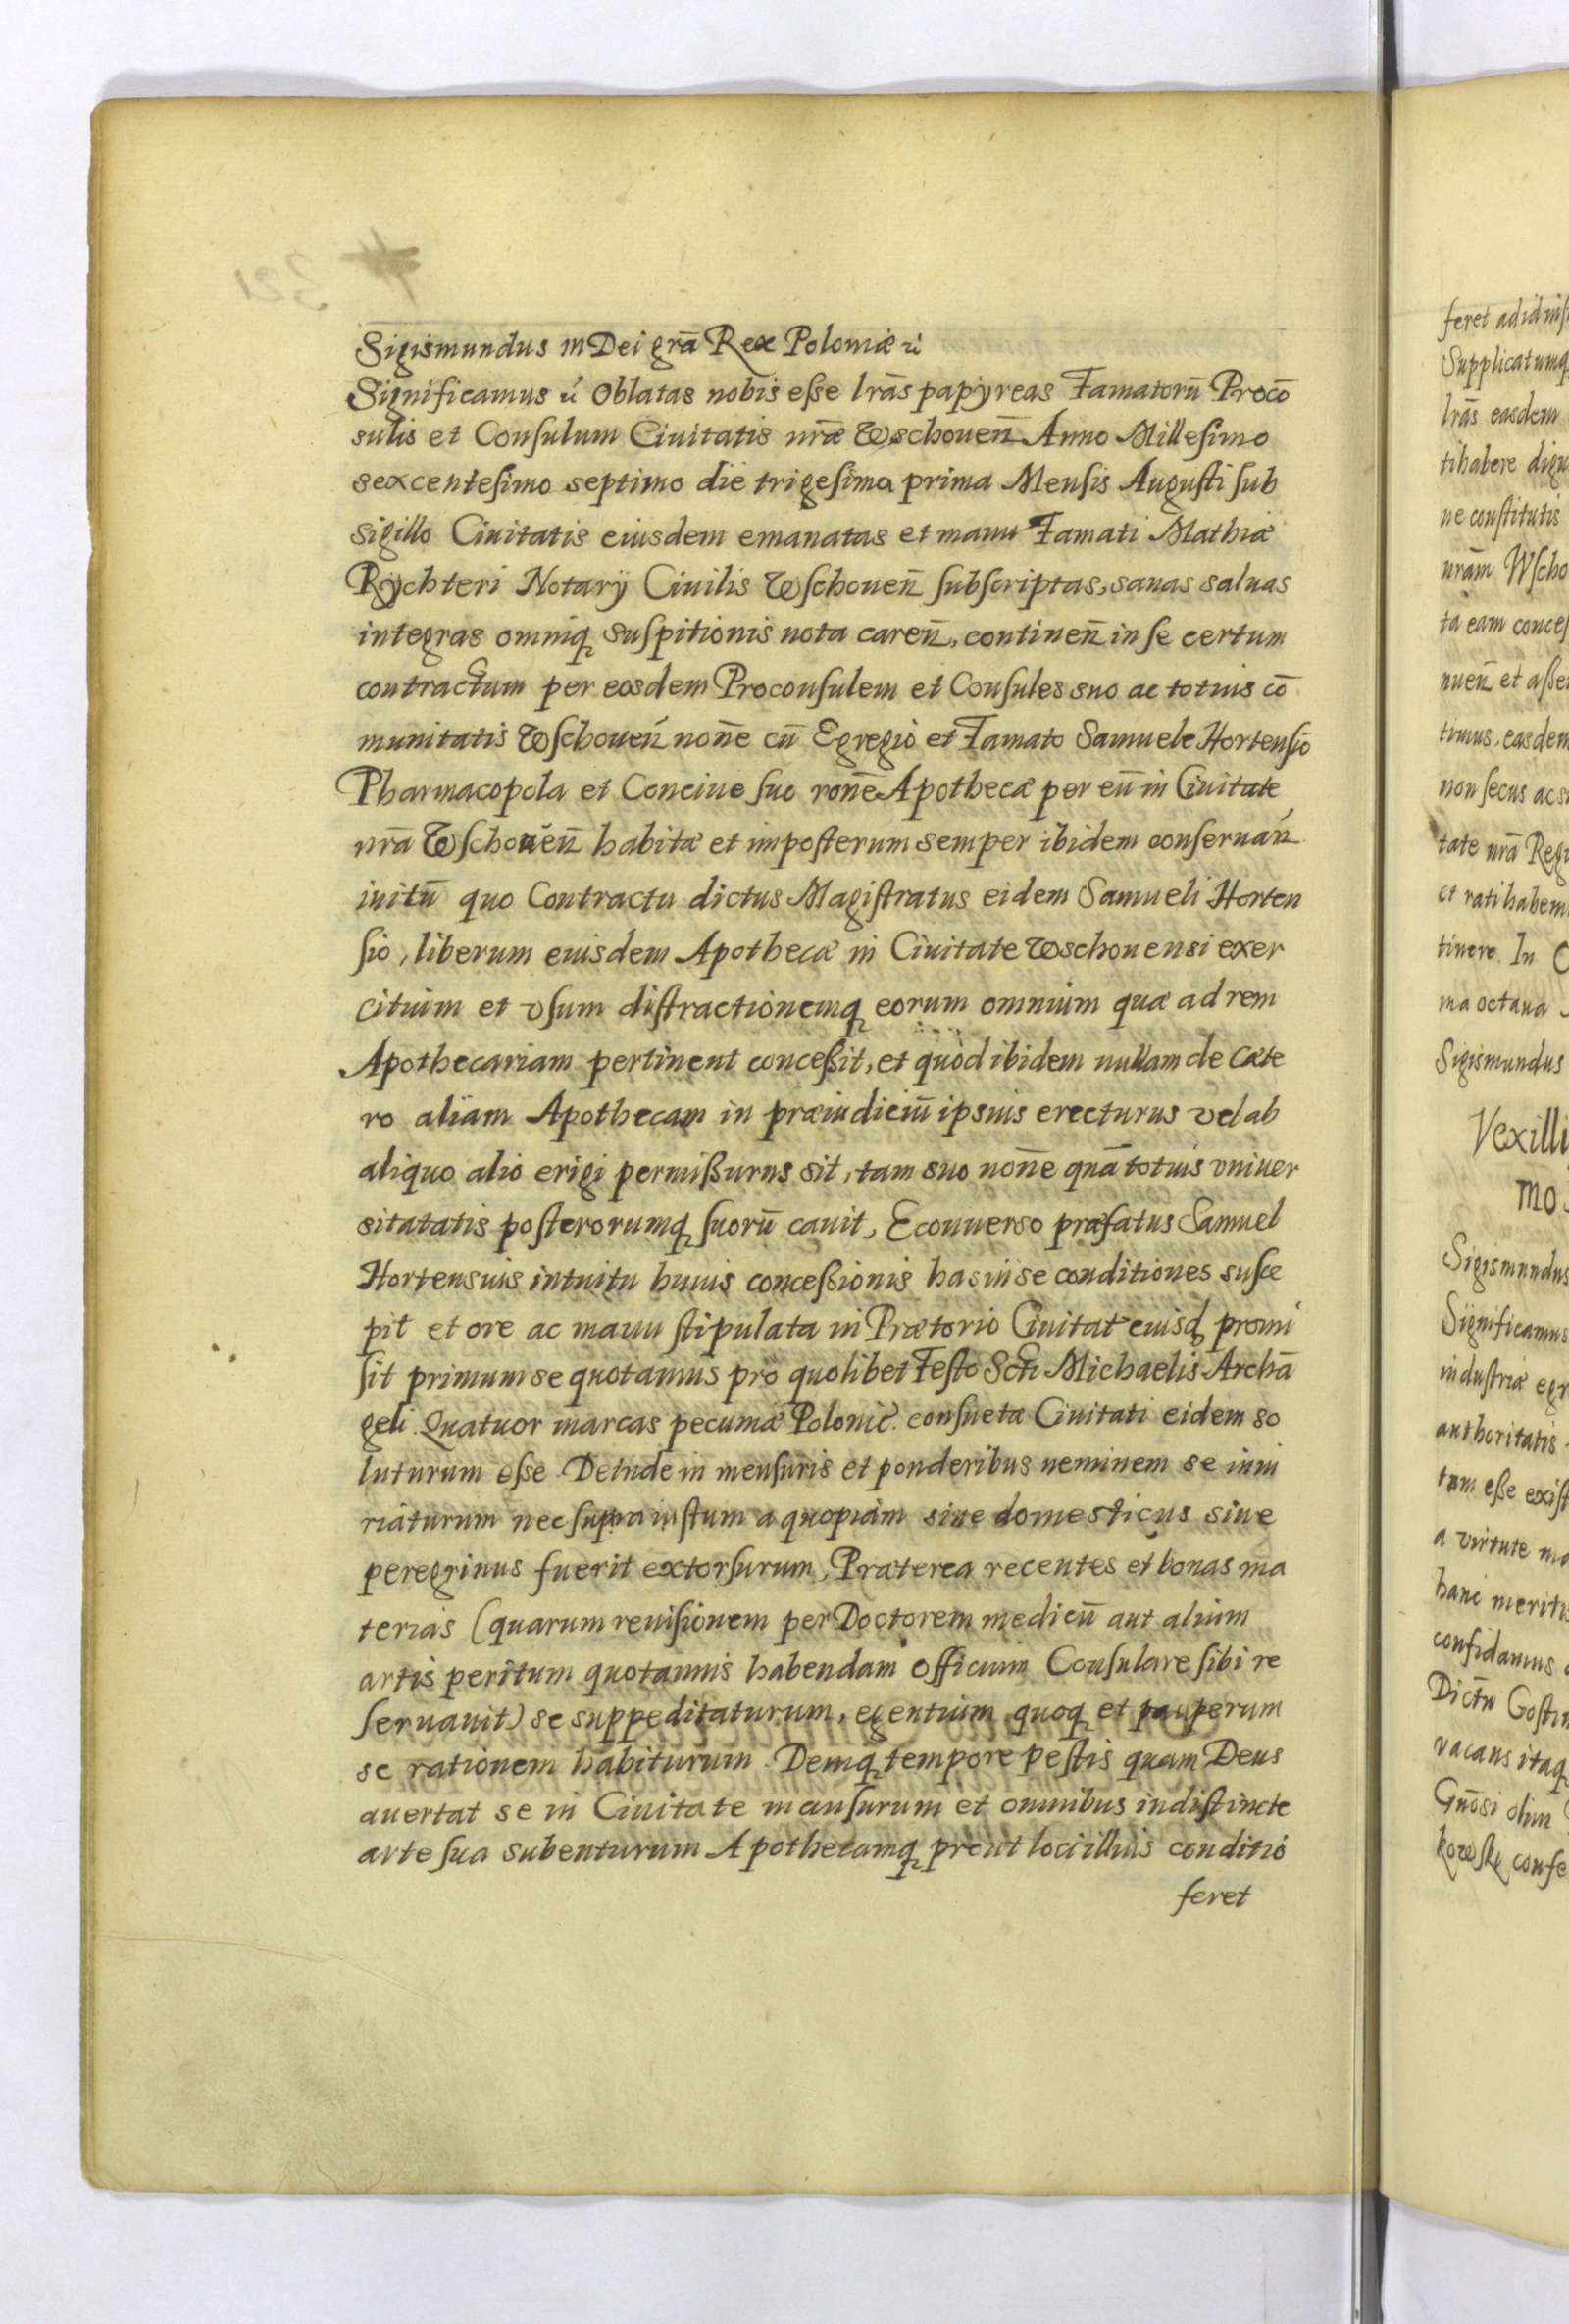 Sigismundus III Dei grā Rex Poloniæ ꝛc̄
Significamus ꝛc̄ Oblatas nobis eſse lrās papyreas Famatorū Procō
sulis et Consulum Ciuitatis nrǣ Wschouen̄ Anno Milleſimo
sexcenteſimo septimo die trigeſima prima Menſis Auguſti ſub
sigillo Ciuitatis eiusdem emanatas et manu Famati Mathiæ
Rÿchteri Notarÿ Ciuilis Wſchouen̄ ſubſcriptas, sanas saluas
integras omniq̨ suſpitionis nota caren̄, continen̄ in ſe certum
contractum per eosdem Proconſulem et Conſules suo ac totius cō
munitatis Wſchouen̄ noīne cū Egregio et Famato Samuele Hortenſio
Pharmacopola et Conciue ſuo rone Apothecæ per eū in Ciuitate
nrā Wſchouen̄ habitæ et impoſterum semper ibidem conſeruan̄
initū quo Contractu dictus Magiſtratus eidem Samueli Horten
ſio, liberum eiusdem Apothecæ in Ciuitate Wschouensi exer
citium et vſum diſtractionemq̨ eorum omnium quæ ad rem
Apothecariam pertinent conceßit, et quòd ibidem nullam de cæte
ro aliam Apothecam in præiudiciū ipsius erecturus vel ab
aliquo alio erigi permißurus sit, tam suo noīne quā totius vniuer
sitatatis poſterorumq̨ ſuorū cauit, Econuerso præfatus Samuel
Hortensius intuitu huius conceßionis has in se conditiones susce
pit et ore ac manu ſtipulata in Prætorio Ciuitat eiusd̨ promi
ſit primum se quotannis pro quolibet Feſto Scti Michaelis Archā
geli. Quatuor marcas pecuniæ Polonic̄. conſuetæ Ciuitati eidem so
luturum eſse. Deinde in menſuris et ponderibus neminem se iniu
riaturum nec ſupra iuſtum a quopiam siue domesticus siue
peregrinus fuerit extorſurum, Præterea recentes et bonas ma
terias (quarum reuiſionem per Doctorem medicū aut alium
artis peritum quotannis habendam officium Conſulare ſibi re
ſeruauit) se suppeditaturum, egentium quoq̨ et pauperum
se rationem habiturum. Deniq̨ tempore peſtis quam Deus
auertat se in Ciuitate manſurum et omnibus indiſtincte
arte ſua subenturum Apothecamq̨ prout loci illius conditio
feret